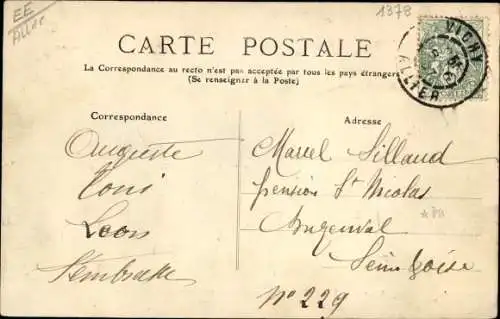 EE
Allier
1378
VICHY
ALLIER
CARTE POSTALE
La Correspondance au recto n'est pas acceptée par tous les pays étrangers
(Se renseigner à la Poste)
Correspondance
Auguste
Léon
Adresse
Marcel Sillaud
pension St Nicolas
Seine & Oise
n° 229